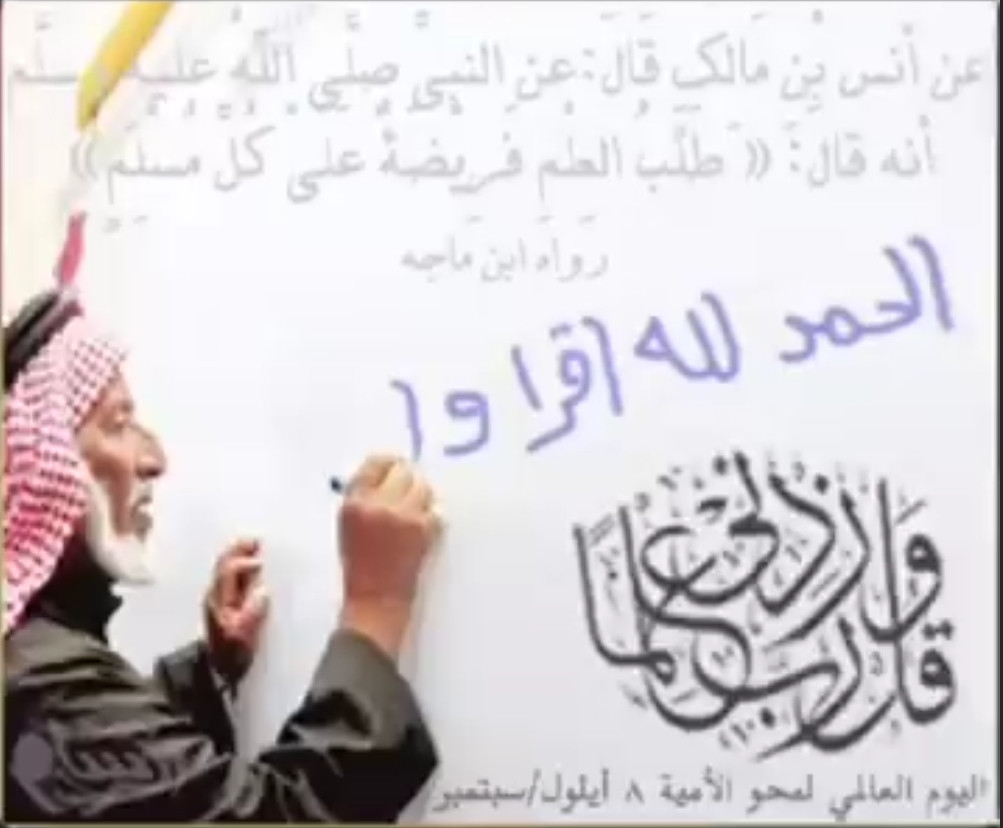 عن أنس بن مالك قال: عن النبي صلى الله عليه وسلم
أنه قال: « طلب العلم فريضة على كل مسلم»
رواه ابن ماجه
الحمد لله اقرا وا
وقل رب زدني علما
اليوم العالمي لمحو الأمية ٨ أيلول/سبتمبر